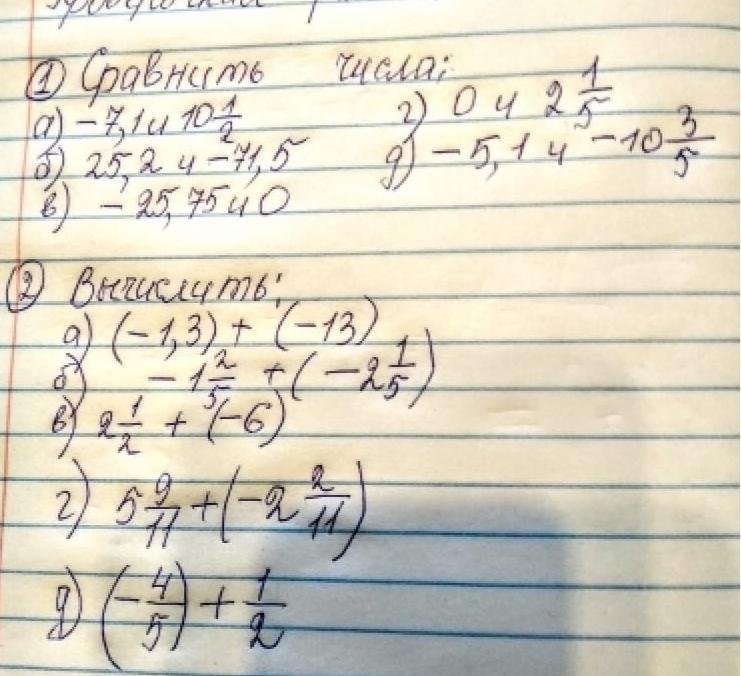 ① Сравнить числа:
а) -7,1 и 10 1/2
б) 25,2 и -71,5
в) -25,75 и 0
г) 0 и 2 1/5
д) -5,1 и -10 3/5
② Вычислить:
а) (-1,3) + (-13)
б) -1 2/5 + (-2 1/5)
в) 2 1/2 + (-6)
г) 5 9/11 + (-2 2/11)
д) (-4/5) + 1/2